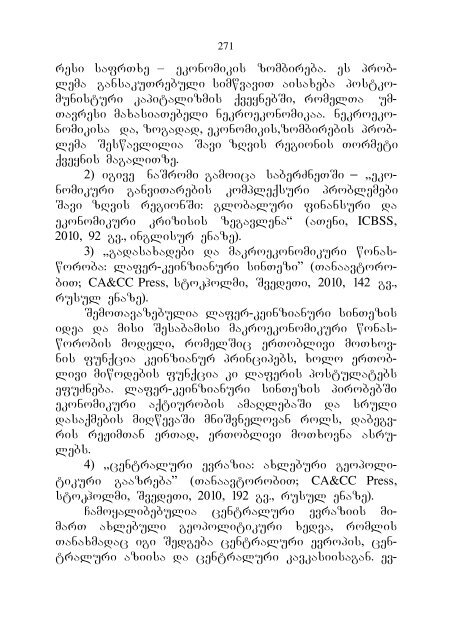 271
რესი საფრთხე – ეკონომიკის ზომბირება. ეს პრობ-
ლემა განსაკუთრებული სიმწვავით აისახება პოსტკო-
მუნისტური კაპიტალიზმის ქვეყნებში, რომელთა უმ-
თავრესი მახასიათებელი ნეკროეკონომიკაა. ნეკროეკო-
ნომიკისა და, ზოგადად, ეკონომიკის,ზომბირების პრობ-
ლემა შესწავლილია შავი ზღვის რეგიონის თორმეტი
ქვეყნის მაგალითზე.
2) იგივე ნაშრომი გამოიცა საბერძნეთში – „ეკო-
ნომიკური განვითარების კომპლექსური პრობლემები
შავი ზღვის რეგიონში: გლობალური ფინანსური და
ეკონომიკური კრიზისის ზეგავლენა“ (ათენი, ICBSS,
2010, 92 გვ., ინგლისურ ენაზე).
3) „გადასახადები და მაკროეკონომიკური წონას-
წორობა: ლაფერ-კეინზიანური სინთეზი” (თანაავტორო-
ბით; CA&CC Press, სტოკჰოლმი, შვედეთი, 2010, 142 გვ.,
რუსულ ენაზე).
შემოთავაზებულია ლაფერ-კეინზიანური სინთეზის
იდეა და მისი შესაბამისი მაკროეკონომიკური წონას-
წორობის მოდელი, რომელშიც ერთობლივი მოთხოვ-
ნის ფუნქცია კეინზიანურ პრინციპებს, ხოლო ერთობ-
ლივი მიწოდების ფუნქცია კი ლაფერის პოსტულატებს
ეფუძნება. ლაფერ-კეინზიანური სინთეზის პირობებში
ეკონომიკური აქტიურობის ამაღლებაში და სრული
დასაქმების მიღწევაში მნიშვნელოვან როლს, დაბეგვ-
რის რეჟიმთან ერთად, ერთობლივი მოთხოვნა ასრუ-
ლებს.
4) „ცენტრალური ევრაზია: ახლებური გეოპოლი-
ტიკური გააზრება” (თანაავტორობით; CA&CC Press,
სტოკჰოლმი, შვედეთი, 2010, 192 გვ., რუსულ ენაზე).
ჩამოყალიბებულია ცენტრალური ევრაზიის მი-
მართ ახლებური გეოპოლიტიკური ხედვა, რომლის
თანახმადაც იგი შედგება ცენტრალური ევროპის, ცენ-
ტრალური აზიისა და ცენტრალური კავკასიისაგან. ევ-